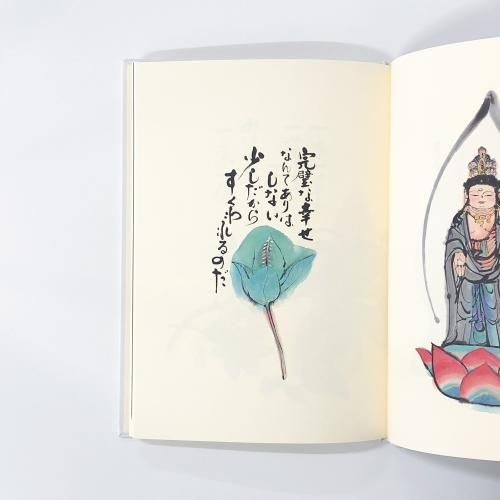 完璧な幸せ
なんてありは
しない
少しだから
すくわ
れるのだ